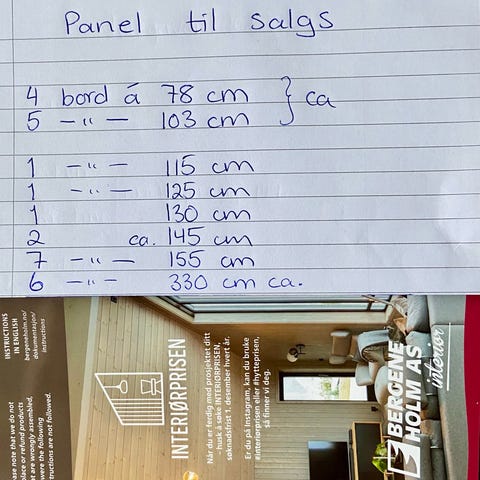 Panel til salgs
4 bord á 78 cm } ca
5 —"— 103 cm
1 —"— 115 cm
1 —"— 125 cm
1 130 cm
2 ca. 145 cm
7 —"— 155 cm
6 —"— 330 cm ca.
INSTRUCTIONS
IN ENGLISH
bergeneholm.no/
dokumentasjon/
instructions
ase note that we do not
lace or refund products
at are wrongly assembled,
were the following
tructions are not followed.
INTERIØRPRISEN
Når du er ferdig med prosjektet ditt
– husk å søke INTERIØRPRISEN,
søknadsfrist 1. desember hvert år.
Er du på Instagram, kan du bruke
#interiorprisen eller #hytteprisen,
så finner vi deg.
BERGENE
HOLM AS
interiør